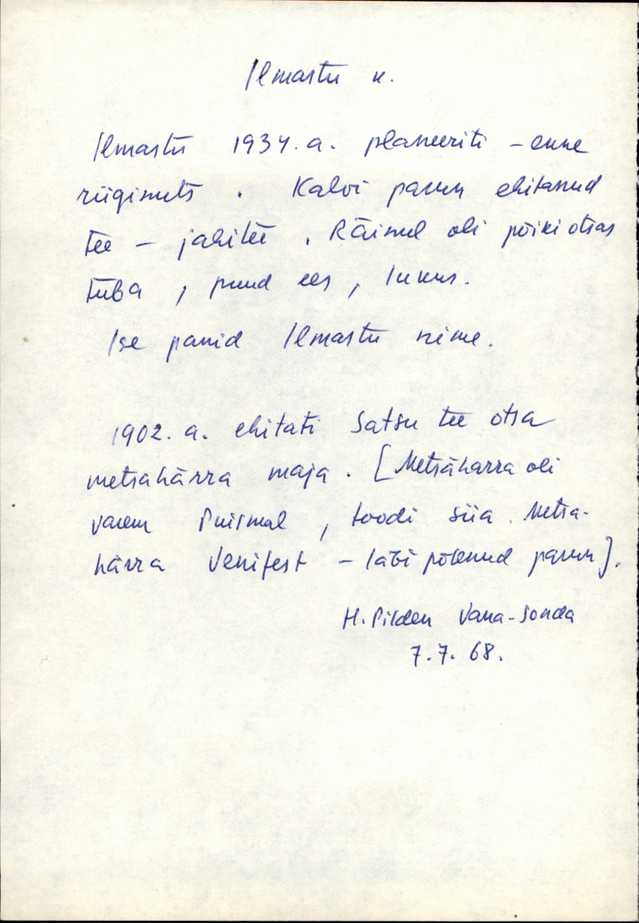 Ilmastu k.
Ilmastu 1934. a. planeeriti – enne
riigimets. Kalvi parun ehitanud
tee – jahitee. Räimel oli põiki otsas
tuba, puud ees, lukus.
Ise panid Ilmastu nime.
1902. a. ehitati Satsu tee otsa
metsahärra maja. [Metsahärra oli
varem Puirmal, toodi siia. Metsa-
härra Venifest – läbi põlenud parun].
H. Pilden Vana-Sonda
7.7.68.